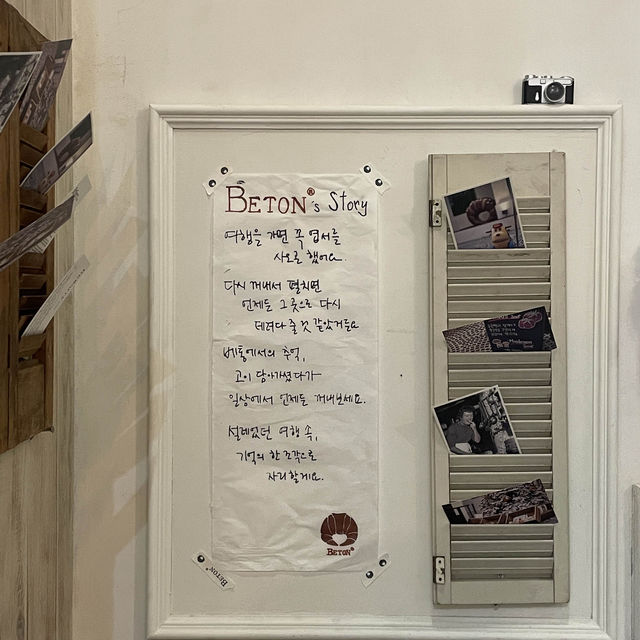 BETON® 's Story
여행을 가면 꼭 엽서를
사오곤 했어요.
다시 꺼내서 펼치면
언제든 그곳으로 다시
데려다 줄 것 같았거든요
베통에서의 추억,
고이 담아가셨다가
일상에서 언제든 꺼내보세요.
설레었던 여행 속,
기억의 한 조각으로
자리할게요.
BETON®
BETON®